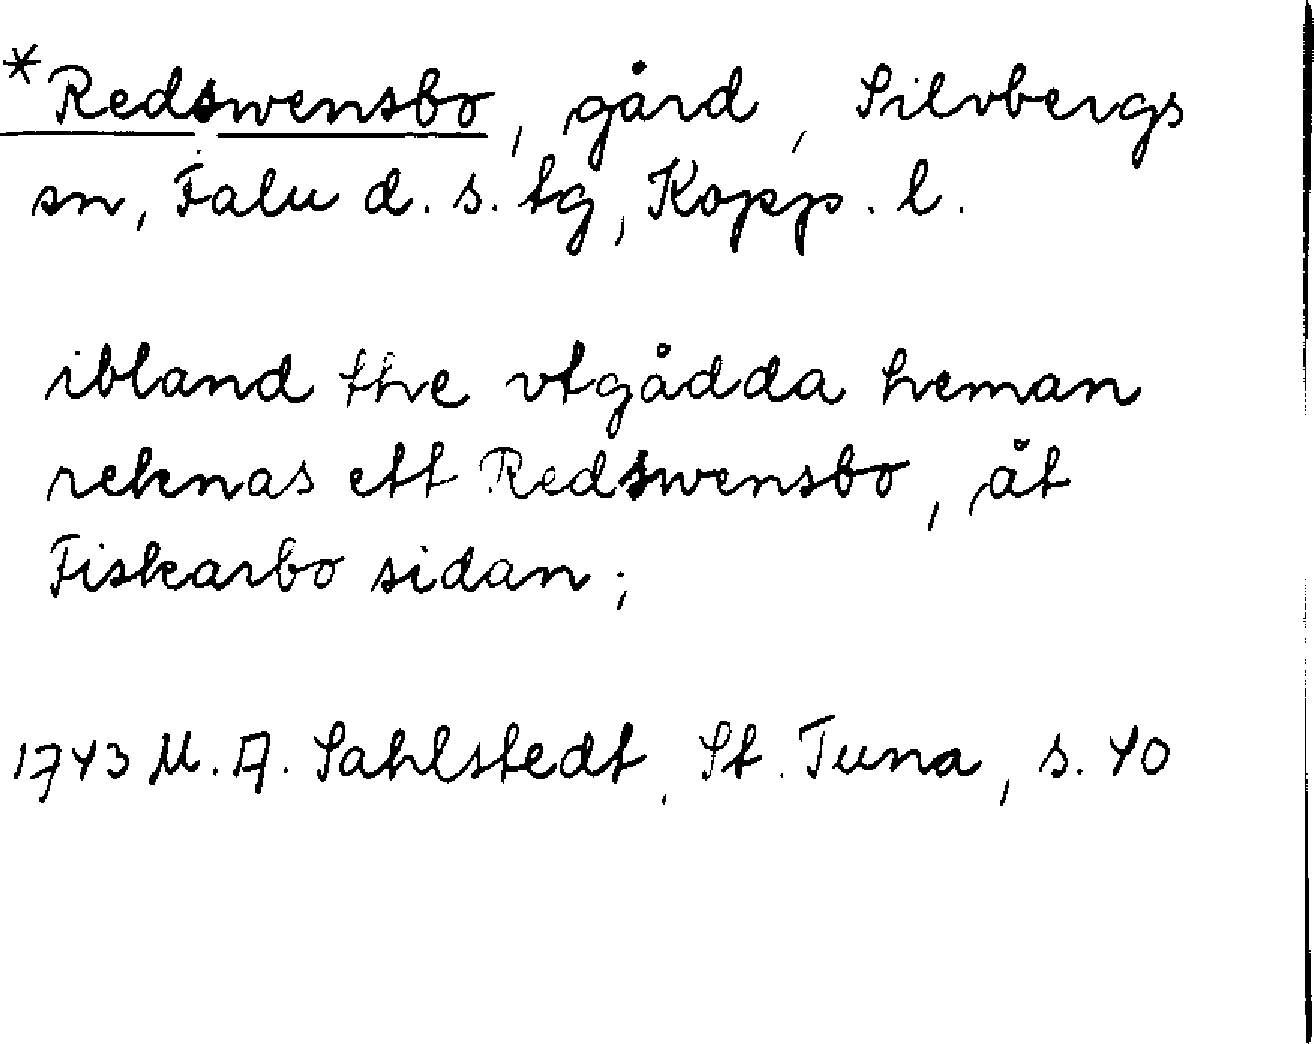 *Redswensbo, gård, Silvbergs
sn, Falu d. s. tg, Kopp. l.
ibland the vtgådda heman
reknas ett Redswensbo, åt
Fiskarbo sidan;
1743 M. A. Sahlstedt, St. Tuna, s. 40